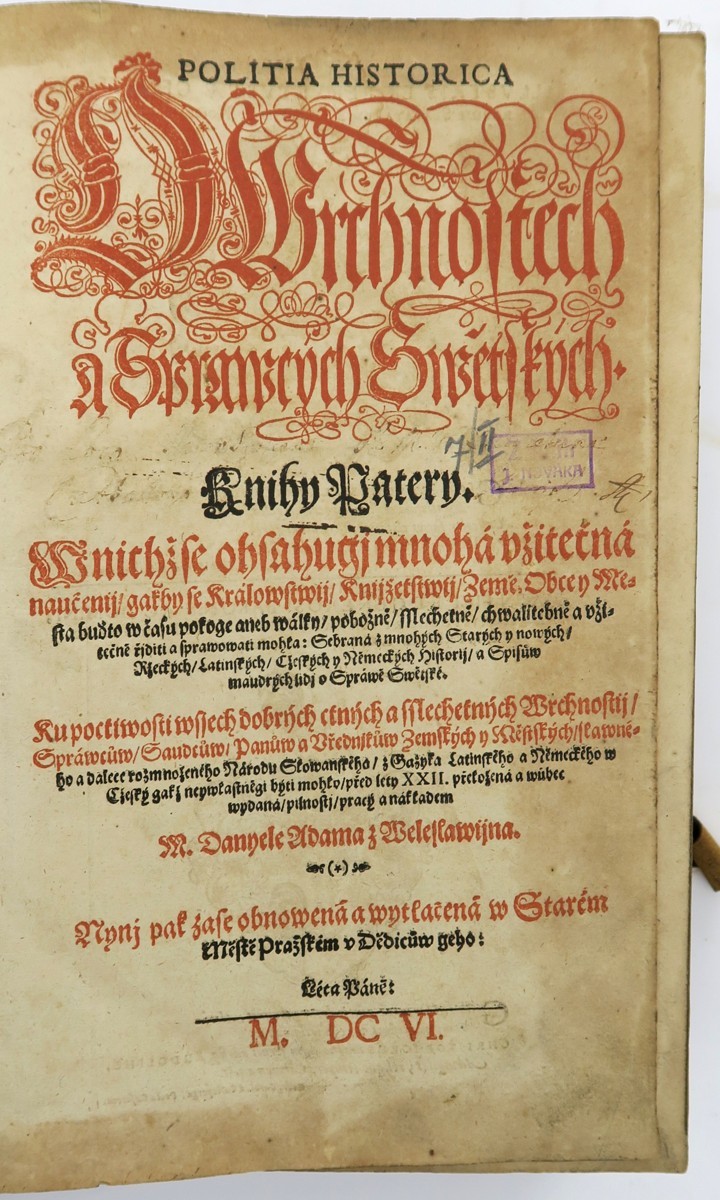 POLITIA HISTORICA
O Wrchnostech
a Sprawcých Swětských.
7/II
NOVÁKA
Knihy Patery.
W nichž se obsahugj mnohá vžitečná
naučenij/ gakby se Králowstwij/ Knijžetstwij/ Země. Obce y Mě-
sta buďto w času pokoge aneb wálky/ pobožně/ sslechetně/ chwalitebně a vži-
tečně řjditi a sprawowati mohla: Sebraná z mnohých Starých y nowých/
Ržeckých/ Latinských/ Cžeských y Německých Historij/ a Spisůw
maudrých lidj o Spráwě Swětské.
Ku poctiwosti wssech dobrých ctných a sslechetných Wrchnostij/
Spráwcůw/ Saudcůw/ Panůw a Vřednjkůw Zemských y Městských/ slawné-
ho a dalece rozmnoženého Národu Slowanského/ z Gazyka Latinského a Německého w
Cžeský gakž neywlastněgi býti mohlo/ před lety XXII. přeložená a wůbec
wydaná/ pilnostj/ pracý a nákladem
M. Danyele Adama z Weleslawijna.
(*)
Nynj pak zase obnowená a wytlačená w Starém
Městě Pražském v Dědicůw geho:
Léta Páně:
M. DC VI.